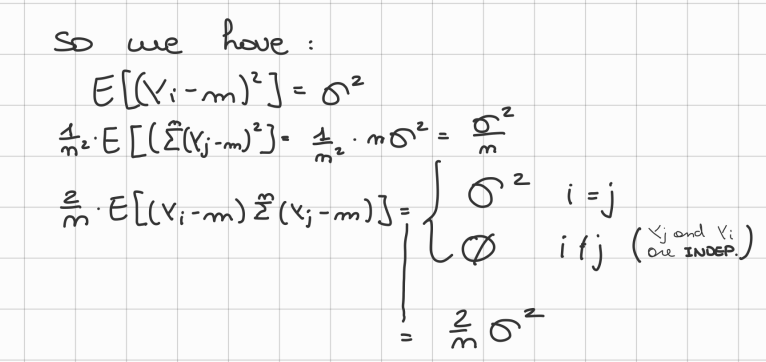 so we have :
E[(Yi-m)²] = σ²
1/n² · E[(Σⁿ(Yj-m)²] = 1/n² · nσ² = σ²/n
2/n · E[(Yi-m) Σⁿ(Yj-m)] = { σ² i = j
∅ i ≠ j (Yj and Yi are INDEP.)
= 2/n σ²